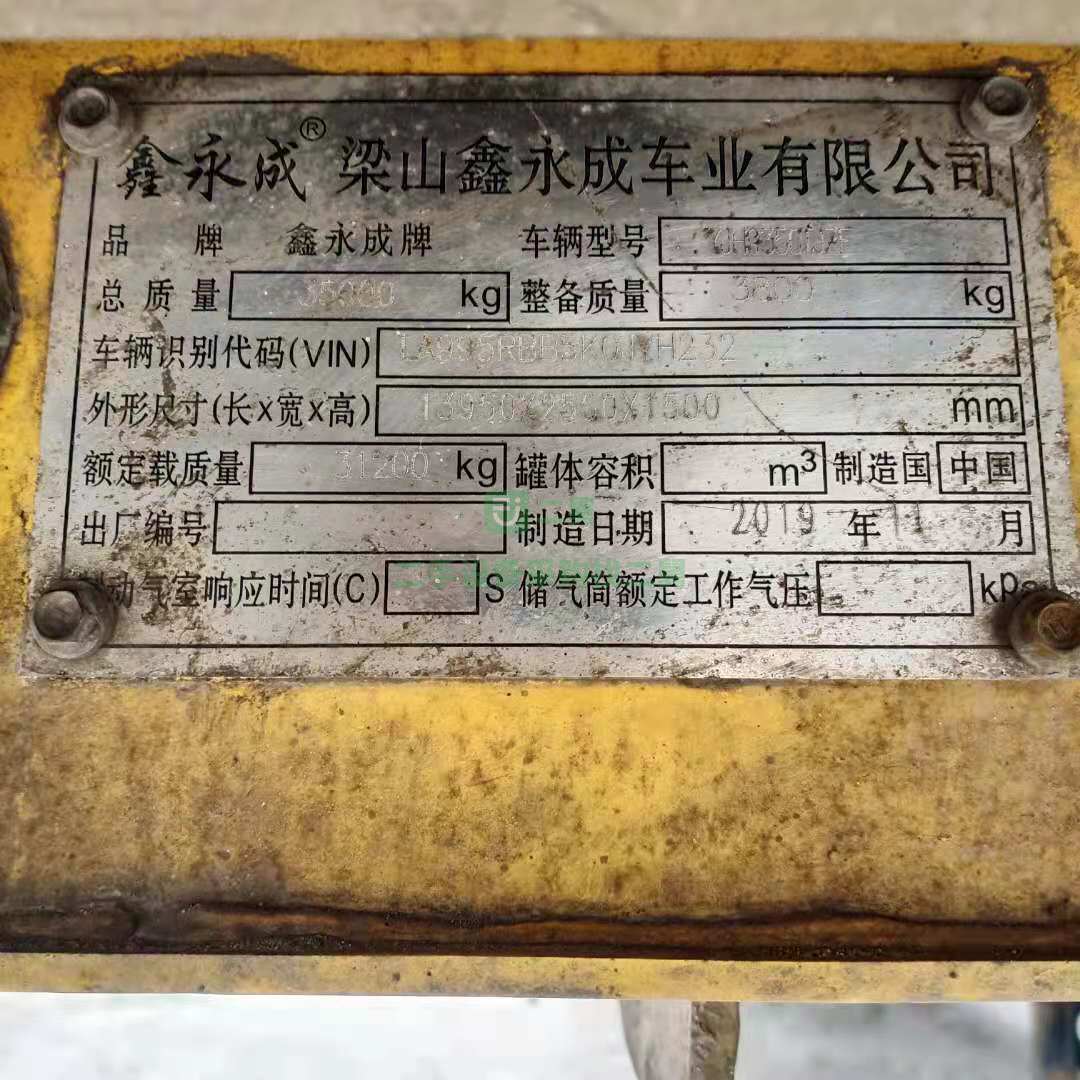 鑫永成® 梁山鑫永成车业有限公司
品 牌 鑫永成牌 车辆型号
总质量 35000 kg 整备质量 3800 kg
车辆识别代码(VIN)
外形尺寸(长x宽x高) 13950X2550X1500 mm
额定载质量 31200 kg 罐体容积 m³ 制造国 中国
出厂编号 制造日期 2019 年 11 月
动气室响应时间(C) S 储气筒额定工作气压 kPa